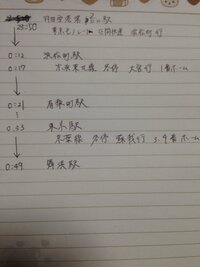 23:50 羽田空港第 ビル駅
東京モノレール 区間快速 浜松町行
0:12 浜松町駅
0:17 京浜東北線 各停 大宮行 1番ホーム
0:21 有楽町駅
0:33 東京駅
京葉線 各停 蘇我行 3.4番ホーム
0:49 舞浜駅